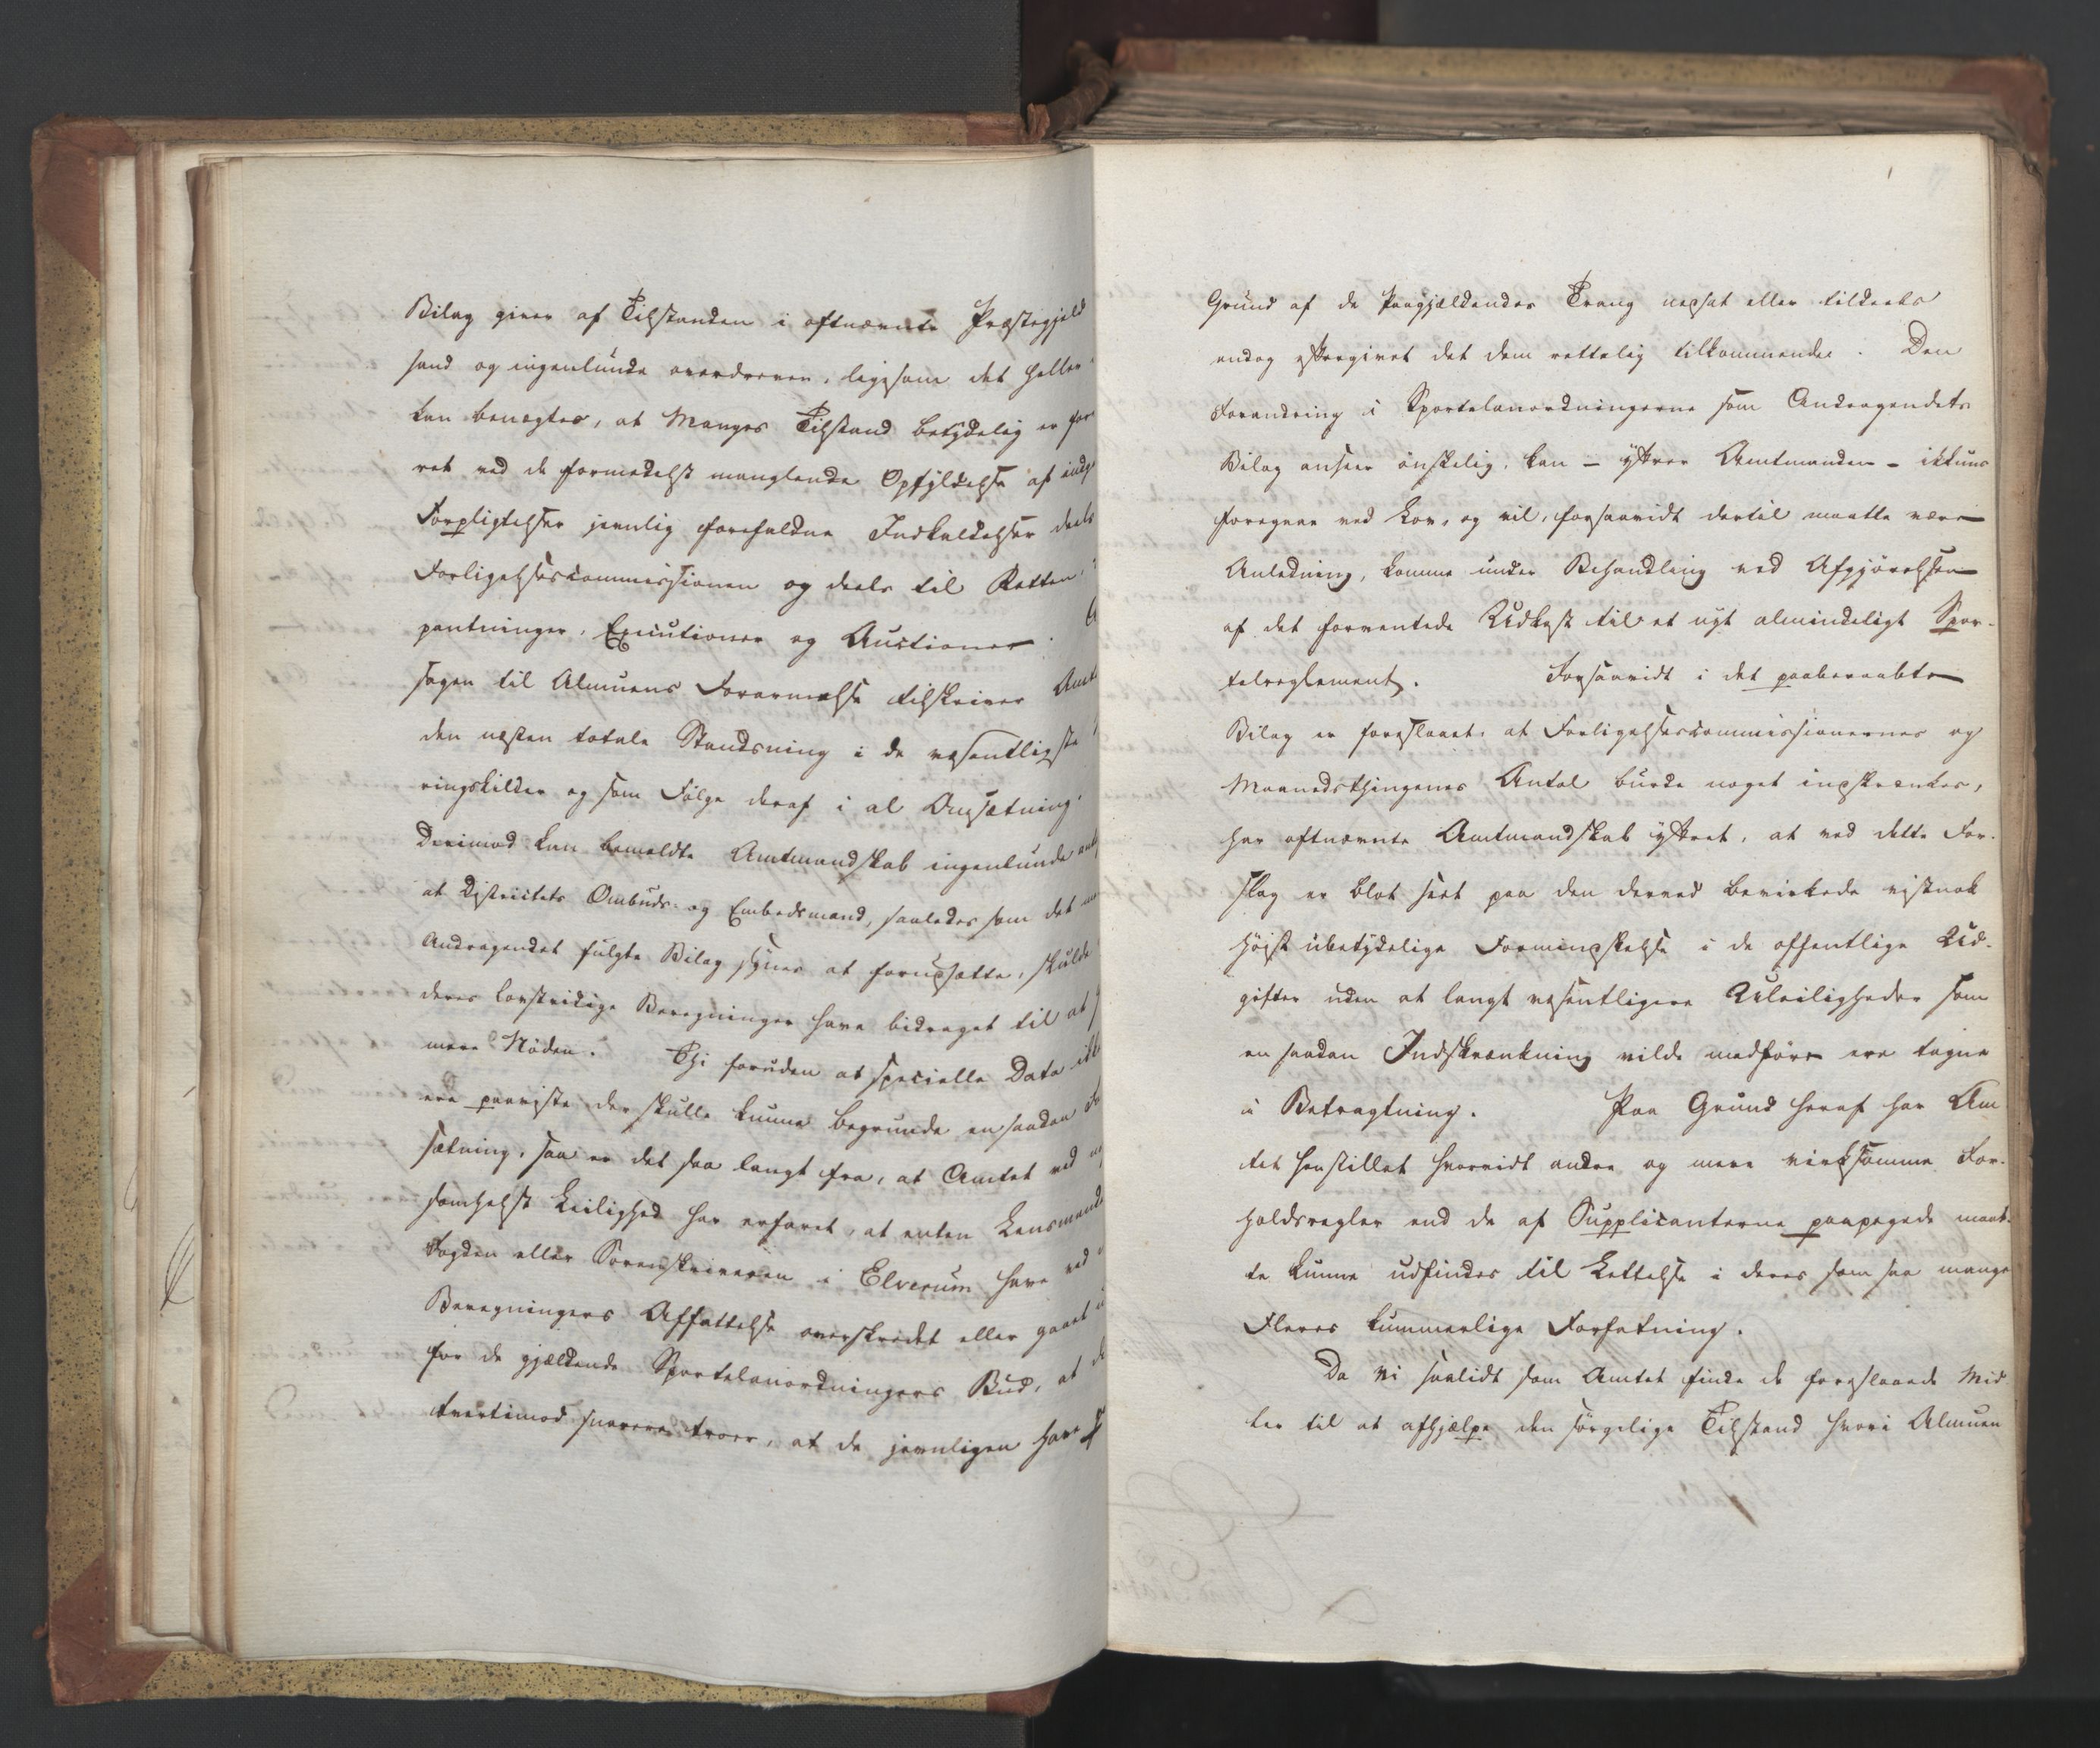 Bilag giver af Tilstanden i oftnævnte Præstegjeld
sand og ingenlunde overdreven, ligesom det heller
kan benægtes, at Manges Tilstand betydelig er for
ret ved de formedelst manglende Opfyldelse af indg
Forpligtelser jevnlig forefaldne Indkaldelser deels
Forligelsescommissionen og deels til Retten,
pantninger, Executioner og Auctioner.
sagen til Almuens Forarmelse tilskriver Amt
den næsten totale Standsning i de væsentligste
ringskilder og som Følge deraf i al Omsætning.
Derimod kan bemeldte Amtmandskab ingenlunde ant
at Districtets Ombuds- og Embedsmænd, saaledes som det
Andragendet fulgte Bilag synes at forudsætte, skulde
deres lovstridige Beregninger have bidraget til at
mere Nøden. Thi foruden at specielle Data ikke
ere paaviste der skulle kunne begrunde en saadan
sætning, saa er det saa langt fra, at Amtet ved
somhelst Leilighed har erfaret, at enten Lensmænd
Fogden eller Sorenskriveren i Elverum have ved
Beregningers Affattelse overskredet eller gaaet
for de gjældende Sportelanordningers Bud, at
tvertimod snarere troer, at de jevnligen have
Grund af de Paagjældendes Trang nedsat eller tildeels
endog eftergivet det dem rettelig tilkommende. Den
Forandring i Sportelanordningerne som Andragendets
Bilag anseer ønskelig, kan - yttrer Amtmanden - ikkuns
foregaae ved Lov, og vil, forsaavidt dertil maatte være
Anledning, komme under Behandling ved Afgjørelsen
af det forventede Udkast til et nyt almindeligt Spor-
telreglement. Forsaavidt i det paaberaabte
Bilag er foreslaaet at Forligelsescommissionernes og
Maanedsthingenes Antal burde noget indskrænkes,
har oftnævnte Amtmandskab yttret, at ved dette For-
slag er blot seet paa den derved bevirkede vistnok
høist ubetydelige Formindskelse i de offentlige Ud-
gifter uden at langt væsentligere Uleiligheder som
en saadan Indskrænkning vilde medføre ere tagne
i Betragtning. Paa Grund heraf har Am
tet henstillet hvorvidt andre og mere virksomme For-
holdsregler end de af Supplicanterne paapegede maat-
te kunne udfindes til Lettelse i deres som saa mange
Fleres kummerlige Forfatning.
Da vi saalidt som Amtet finde de foreslaaede Mid
ler til at afhjælpe den sørgelige Tilstand hvori Almuen